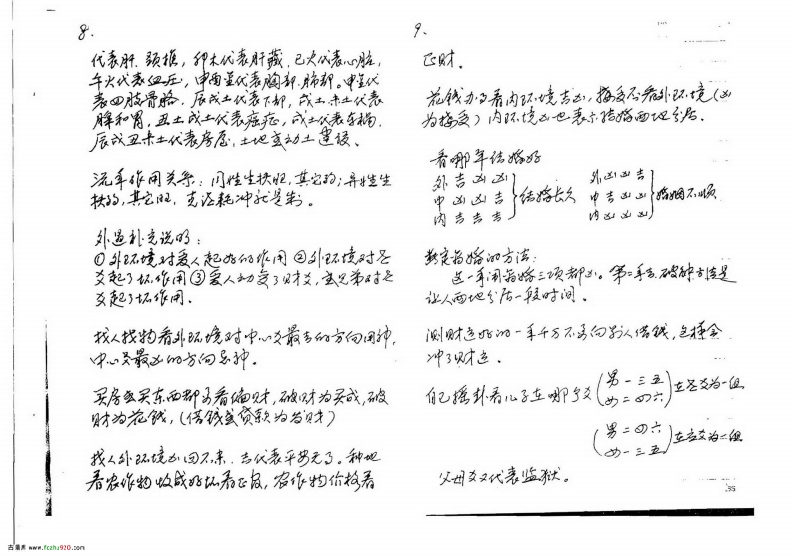 8.
代表肝、颈椎，卯木代表肝藏，巳火代表心脏，
午火代表血压，申酉金代表胸部.肺部。申金代
表四肢骨骼．辰戌土代表下部，戌土.未土代表
脾和胃，丑土戌土代表癌症，戌土代表子
辰戌丑未土代表房屋，土地变动土建设、
流年作用关系：同性生扶旺，其它弱；异性生
扶弱，其它旺，克泄耗冲就是制。
外边补充说明：
①外环境对爱人起好的作用 ②外环境对世
爻起了坏作用③爱人动变了财爻，或兄弟对世
爻起了坏作用．
找人找物看外环境对中心爻最吉的方向用神，
中心爻最凶的方向忌神．
买房或买东西都要看偏财，破财为买成，破
财为花钱，（借钱或贷款为当财）
找人外环境凶回不来．吉代表平安无事．种地
看农作物收成好坏看正，农作物价格看
9.
正财．
花钱办事看内环境吉凶，接受否看外环境（凶
为接受）内环境凶也表示结婚两地分居．
看哪年结婚好
外吉凶凶
中凶凶吉 结婚长久
内吉吉吉
外凶凶吉
中吉凶凶 婚姻不顺
内凶凶凶
断定结婚的方法：
这一年闹离婚三项都凶。第二年去破解方法是
让人两地分居一段时间．
测财运好的一年千万不要向别人借钱，怎样会
冲了财运．
自己摇卦看儿子在哪个爻（男一三五 女二四六）在世爻为一组
（男二四六 女一三五）在应爻为二组
父母爻又代表监狱。
35
古易库 www.fczhu920.com